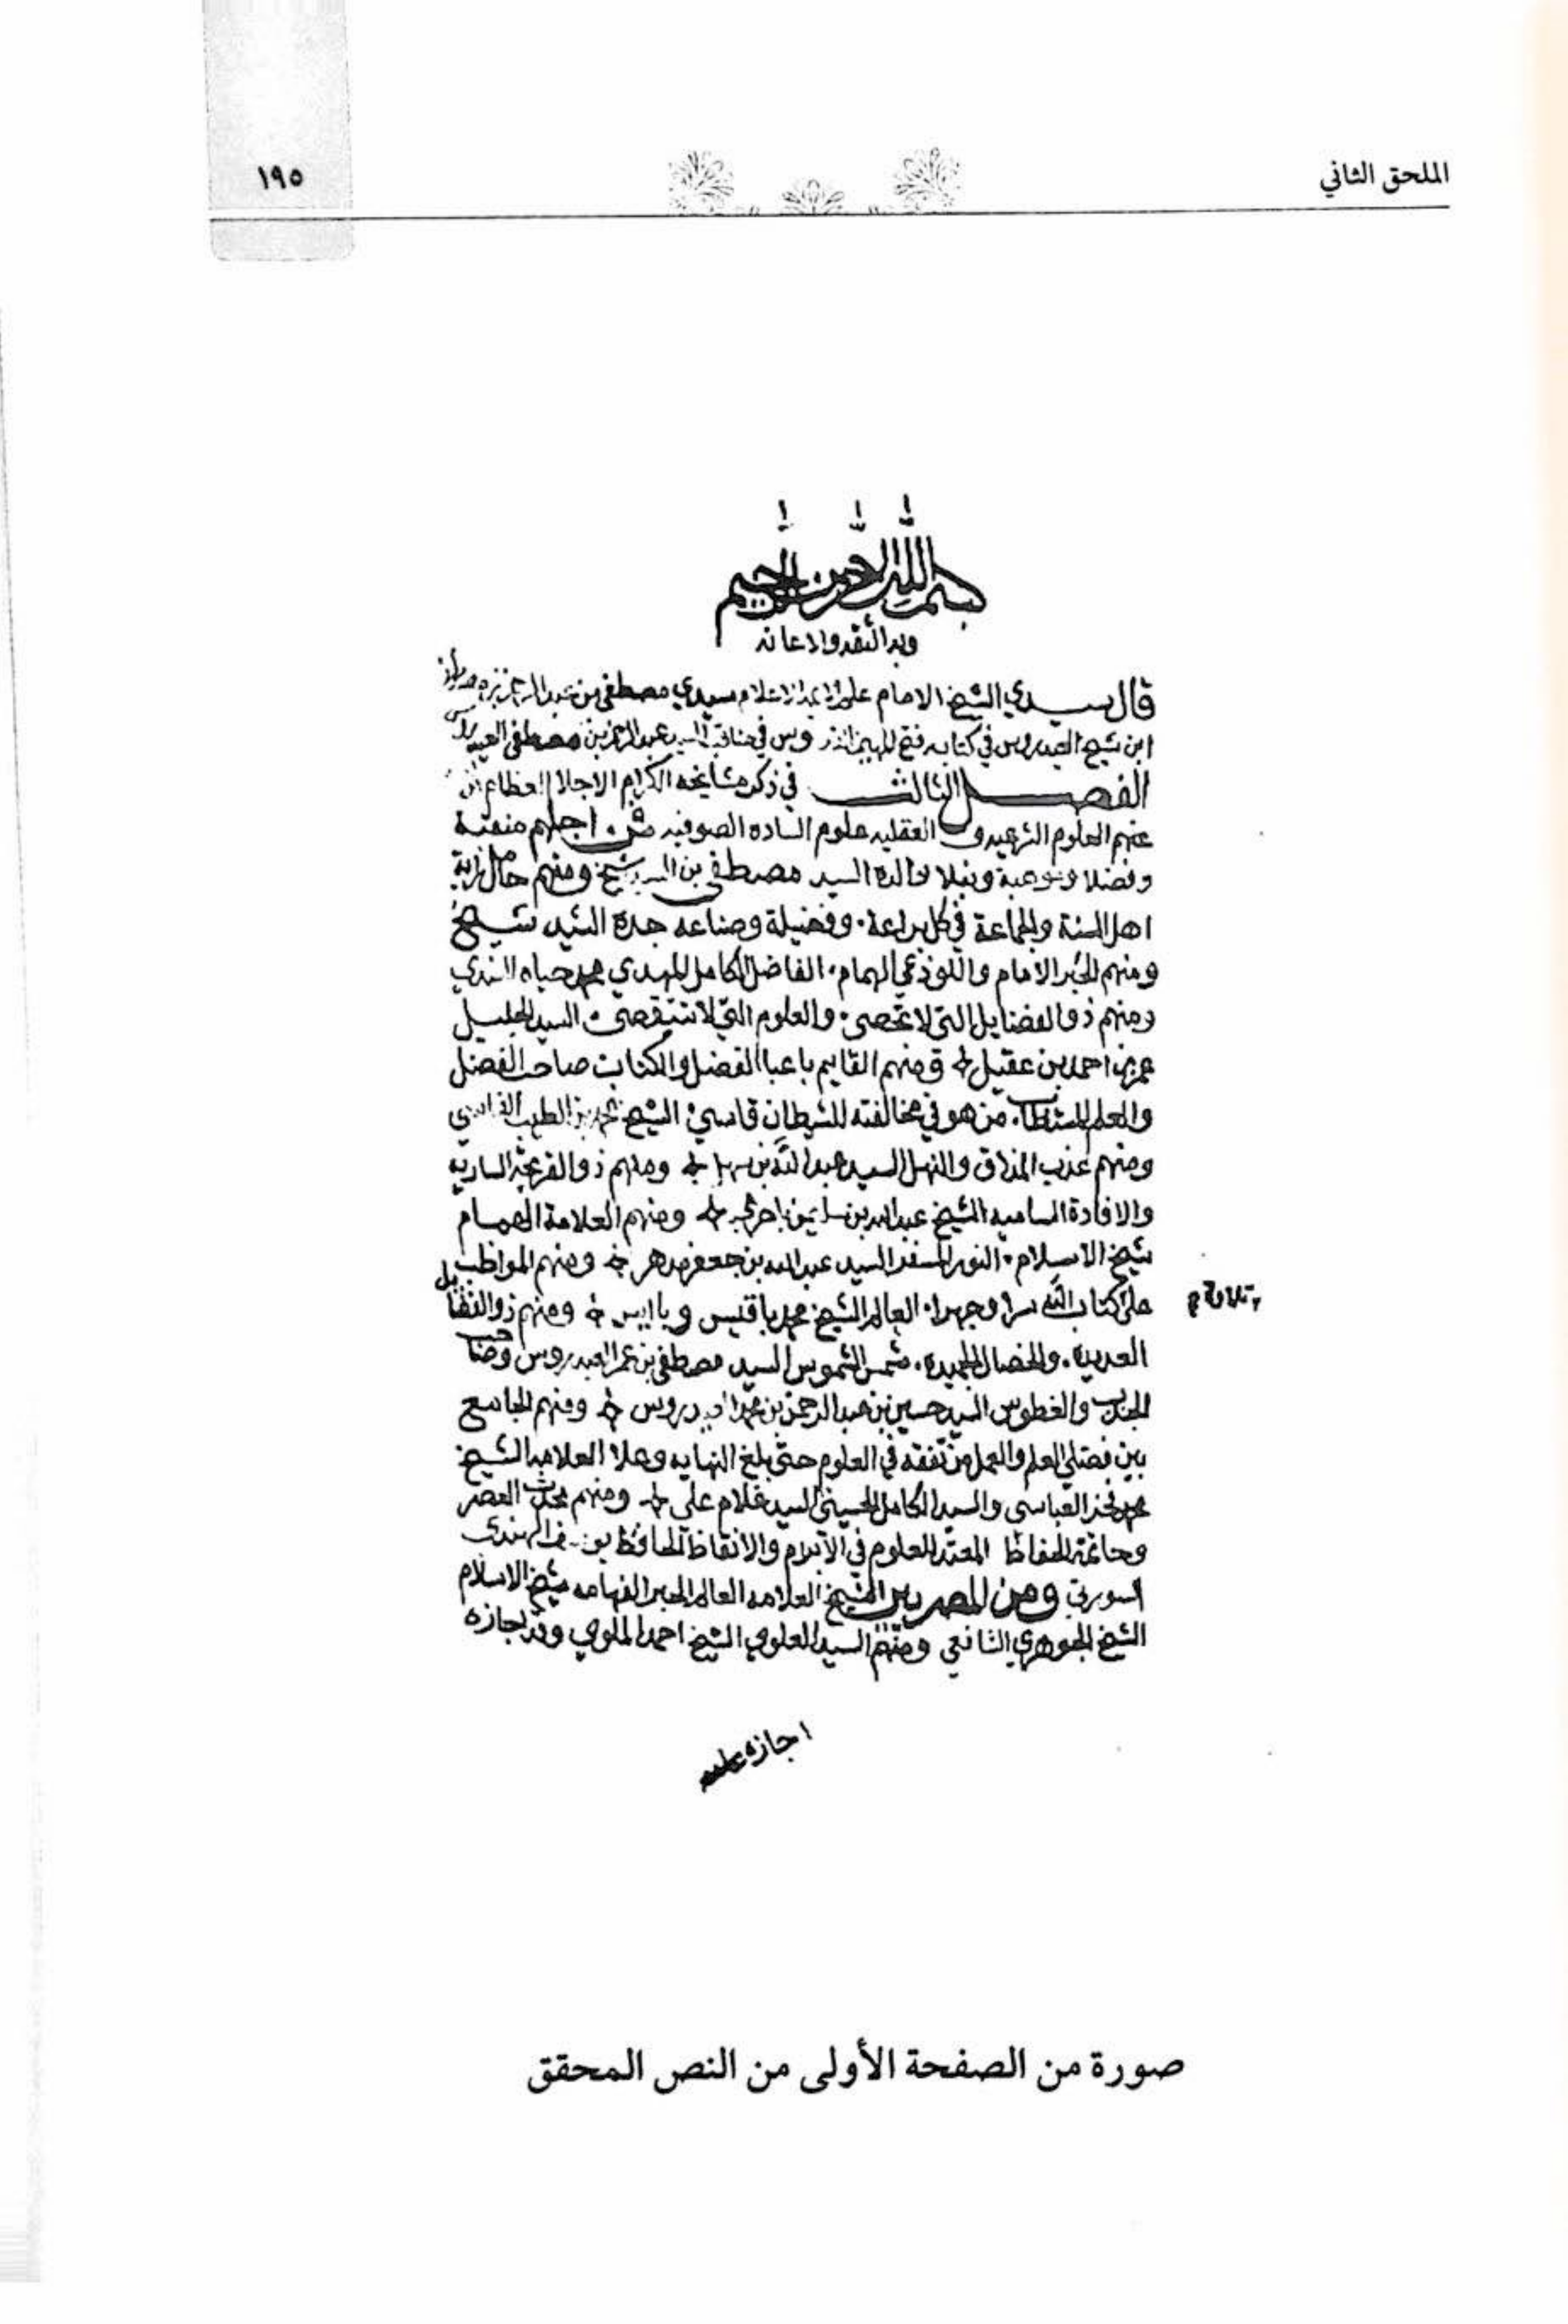 الملحق الثاني
١٩٥
بسم الله الرحمن الرحيم
وبه الثقه والاعانه
قال سيدي الشيخ الامام سيدي مصطفى بن
ابن شيخ العيدروس في كتابه فتح المهيمن القدوس في مناقب السيد عبد الرحمن بن مصطفى العيدروس
الفصل الثالث في ذكر مشايخه الكرام الاجلا العظام
عنهم العلوم الشرعيه و العقليه علوم الساده الصوفيه فمن اجلهم منقبة
وفضلا ونبلا والده السيد مصطفى بن السيد شيخ ومنهم حامل راية
اهل السنة والجماعة في كل براعة . وفضيلة وصناعه جده السيد شيخ
ومنهم الحبر الامام واللوذعي الهمام . الفاضل الكامل المهدي محمد حياه السندي
ومنهم ذو الفضايل التي لا تحصى . والعلوم التي لا تستقصى . السيد الجليل
عمر بن احمد بن عقيل ومنهم القايم باعبا الفضل والكتاب صاحب الفضل
والعلم المستطاب . من هو في مخالفته للشيطان قاسي الشيخ محمد بن الطيب الفاسي
ومنهم عذب المذاق والنهل السيد عبد الله بن سهل ومنهم ذو القريحة الساريه
والافادة الساميه الشيخ عبد الله بن سليمن باحرمي ومنهم العلامة الهمام
شيخ الاسلام . النور المسفر السيد عبد الله بن جعفر مدهر ومنهم المواظب
على كتاب الله سرا وجهرا . العالم الشيخ محمد باقيس و باابيس ومنهم ذو الفضايل
تلاوة م
العديده . والخصال الحميده . شمس الشموس السيد مصطفى بن عمر العيدروس وصاحب
الجذب والغطوس السيد حسين بن عبد الرحمن بن محمد العيدروس ومنهم الجامع
بين فضلي العلم والعمل من تفقه في العلوم حتى بلغ النهايه وعلا العلامه الشيخ
محمد فخر العباسي والسيد الكامل الحسيني السيد غلام علي ومنهم محدث العصر
وخاتمة الحفاظ المعتد للعلوم في الابرام والانقاظ الحافظ يوسف الهندي
السورتي ومن المصريين الشيخ العلامه العالم الحبر الفهامه شيخ الاسلام
الشيخ الجوهري الشافعي ومنهم السيد العلوي الشيخ احمد الملوي وقد اجازه
اجازه
صورة من الصفحة الأولى من النص المحقق